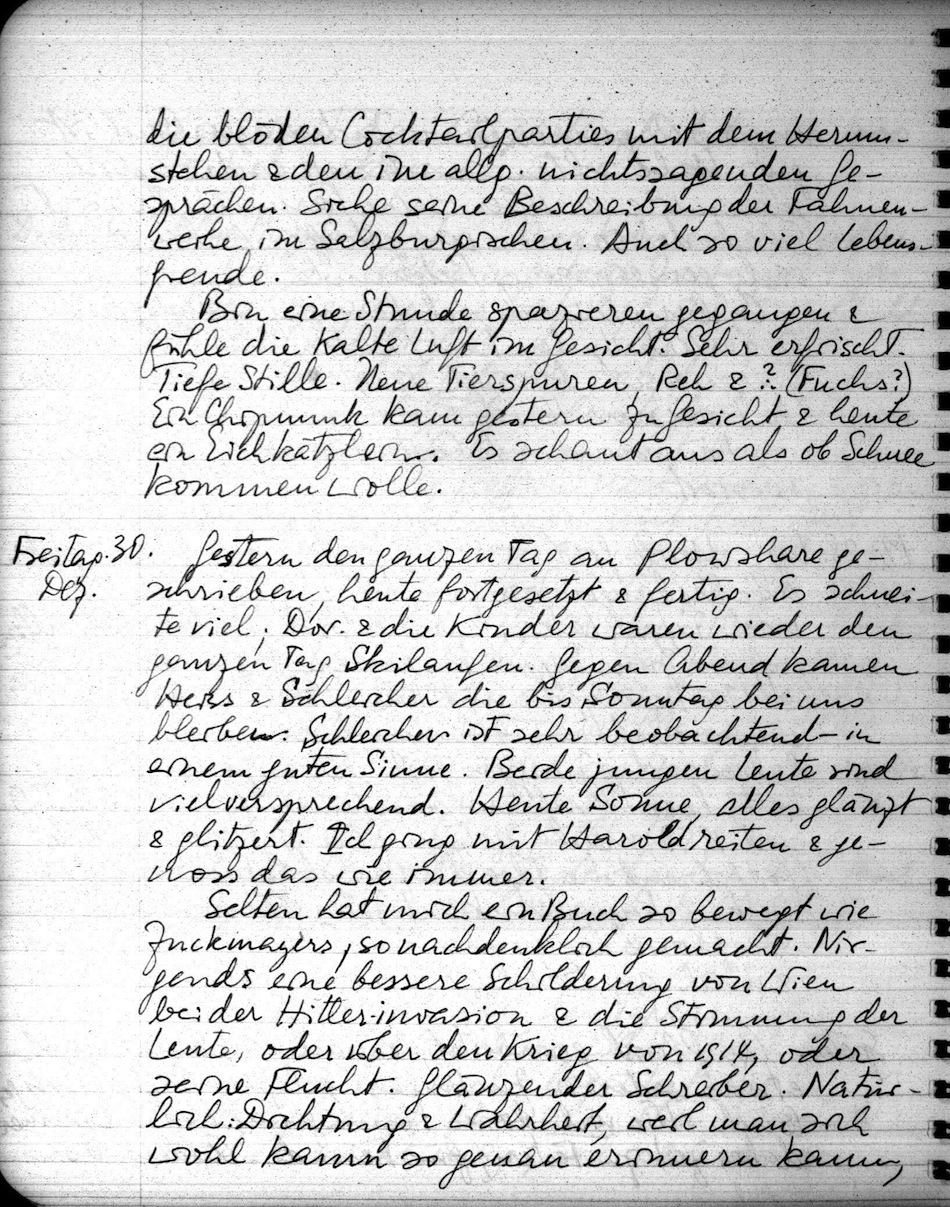 die blöden Cocktailparties mit dem Herum-
stehen & den im allg. nichtssagenden Ge-
sprächen. Siehe seine Beschreibung der Fahnen-
weihe im Salzburgischen. Auch so viel Lebens-
freude.
Bin eine Stunde spazieren gegangen &
fühle die kalte Luft im Gesicht. Sehr erfrischt.
Tiefe Stille. Neue Tierspuren, Reh & ? (Fuchs?)
Ein Chipmunk kam gestern zu Gesicht & heute
ein Eichkätzlein. Es schaut aus als ob Schnee
kommen wolle.
Freitag. 30. Gestern den ganzen Tag an Plowshare ge-
Dez. schrieben, heute fortgesetzt & fertig. Es schnei-
te viel; Dor. & die Kinder waren wieder den
ganzen Tag Skilaufen. Gegen Abend kamen
Heiss & Schleicher die bis Sonntag bei uns
bleiben. Schleicher ist sehr beobachtend – in
einem guten Sinne. Beide jungen Leute sind
vielversprechend. Heute Sonne, alles glänzt
& glitzert. Ich ging mit Harold reiten & ge-
noss das wie immer.
Selten hat mich ein Buch so bewegt wie
Zuckmayers, so nachdenklich gemacht. Nir-
gends eine bessere Schilderung von Wien
bei der Hitler-invasion & die Stimmung der
Leute, oder über den Krieg von 1914, oder
seine Flucht. Glänzender Schreiber. Natür-
lich: Dichtung & Wahrheit, weil man sich
wohl kaum so genau erinnern kann,